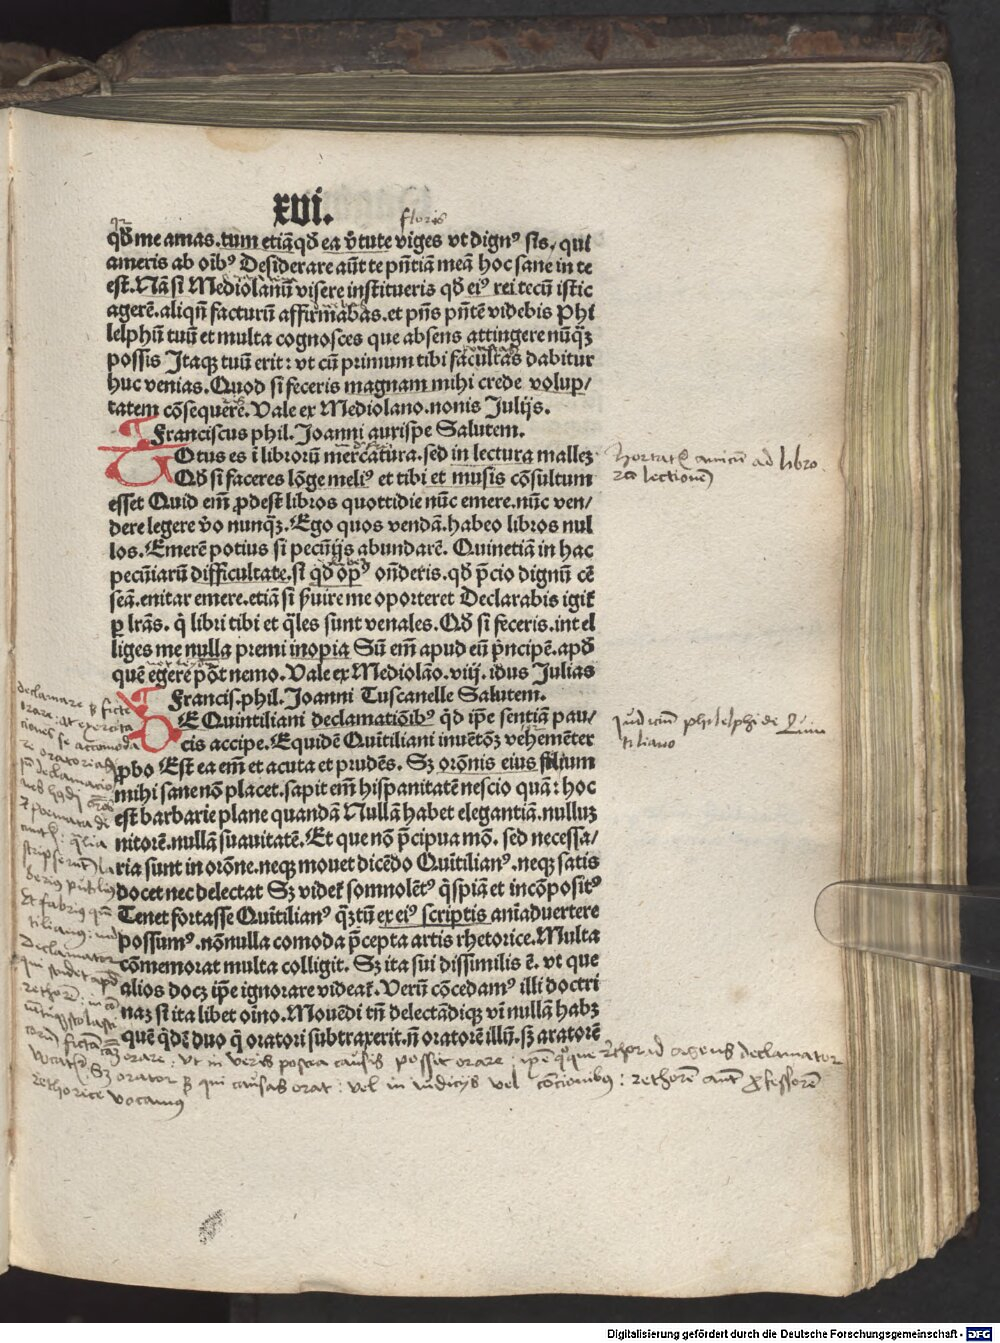 xvi.
floris
qđ me amas.tum etiã qđ ea v̓tute viges vt dignꝰ sis, qui
ameris ab oĩbꝰ Desiderare aũt te pñtiã meã hoc sane in te
est. Nã si Mediolanũ visere institueris qđ eiꝰ rei tecũ istic
agerẽ.aliqñ facturũ affirmabas.et pñs pñtẽ videbis Phi
lelphũ tuũ et multa cognosces que absens attingere nũqꝫ
possis Itaqꝫ tuũ erit: vt cũ primum tibi facultas dabitur
huc venias.Quod si feceris magnam mihi crede volup/
tatem cõsequere.Vale ex Mediolano.nonis Julijs.
Franciscus phil. Joanni aurispe Salutem.
Totus es ĩ librorũ mercatura.sed in lectura malleꝫ
Qđ si faceres lõge meliꝰ et tibi et musis cõsultum
esset Quid em̃ ꝓdest libros quottidie nũc emere.nũc ven/
dere legere v̓o nunqꝫ.Ego quos vendã.habeo libros nul
los.Emerẽ potius si pecũijs abundarẽ. Quinetiã in hac
pecũiarũ difficultate.si qđ opꝰ oñderis.qđ p̃cio dignũ cẽ
seã.enitar emere.etiã si ẜuire me oporteret Declarabis igit̃
ꝑ lr̃as. q̃ libri tibi et q̃les sunt venales. Qđ si feceris.intel
liges me nulla premi inopia Sũ em̃ apud eũ p̃ncipẽ.apđ
quẽ egere põt nemo. Vale ex Mediolão.viij. idus Julias
Francis.phil. Joanni Tuscanelle Salutem.
DE Quintiliani declamatiõibꝰ qđ ip̃e sentiã pau/
cis accipe.Equidẽ Quintiliani inuẽtõꝫ vehemẽter
ꝓbo Est ea em̃ et acuta et prudẽs. Sꝫ orõnis eius filum
mihi sane nõn placet.sapit em̃ hispanitatẽ nescio quã: hoc
est barbarie plane quandã Nullã habet elegantiã.nulluꝫ
nitorẽ.nullã suauitatẽ. Et que nõ p̃cipua mõ. sed necessa/
ria sunt in orõne.neqꝫ mouet dicẽdo Quĩtilianꝰ.neqꝫ satis
docet nec delectat Sꝫ videt̃ somnolẽtꝰ q̃spiã et incõpositꝰ
Tenet fortasse Quĩtilianꝰ qꝫtũ ex eiꝰ scriptis anĩaduertere
possumꝰ.nõnulla comoda p̃cepta artis rhetorice. Multa
cõmemorat multa colligit. Sꝫ ita sui dissimilis ẽ. vt que
alios docꝫ ip̃e ignorare videat̃. Verũ cõcedamꝰ illi doctri
naꝫ si ita libet oĩno. Mouẽdi tñ delectãdiqꝫ vĩ nullã habꝫ
quẽ q̃dẽ duo q̃ oratori subtraxerit.ñ oratorẽ illũ.sꝫ aratorẽ
Hortat̃ amicũ ad libro
rũ lectionẽ
Judiciũ philelphi de Quin
tiliano
declamare ẽ ficte
orare: at exercita
tiones se accomoda
re
orare: vt in veris postea causis possit orare: ip̃e qꝫque rethor id agens declamator
vocat̃ Sꝫ orator ẽ qui causas orat: vel in iudicijs vel cõcionibus: rethorẽ aũt ꝓfessorẽ
rethorice vocamus
Digitalisierung gefördert durch die Deutsche Forschungsgemeinschaft - DFG